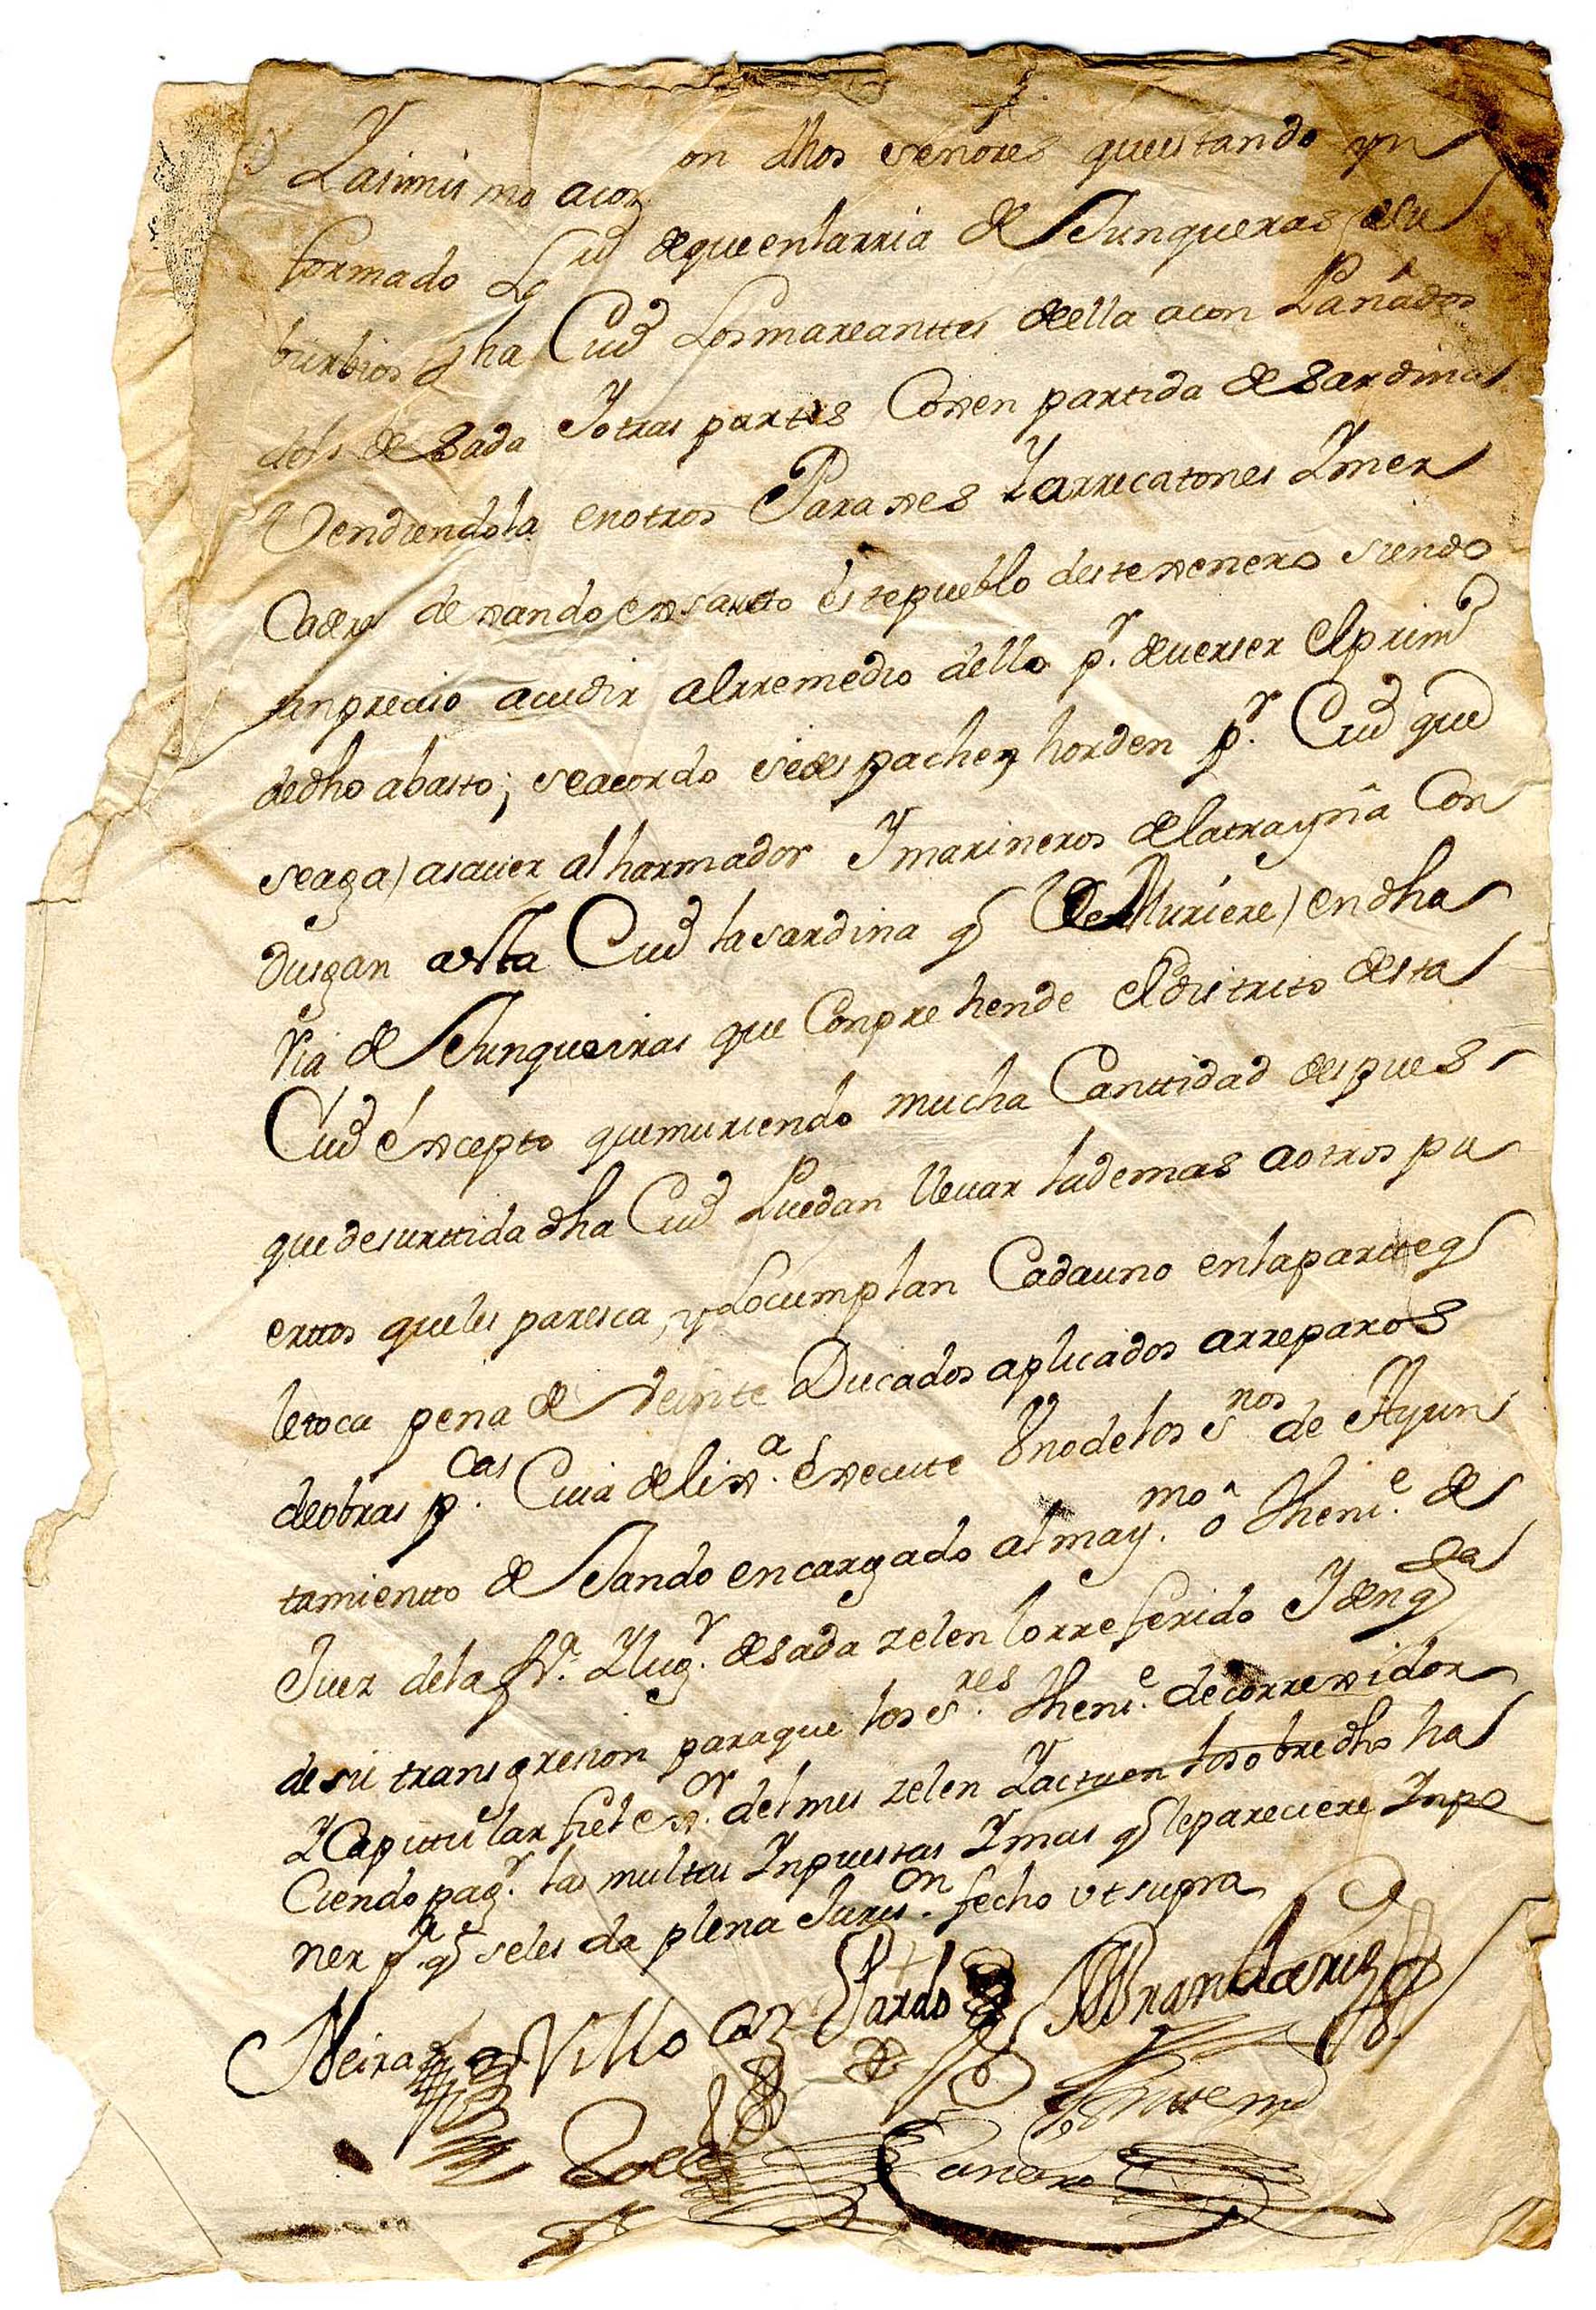 Yasimismo acor on dhos señores queestando yn
formado La Ciud dequeenlarria de Junqueras, esu
burbios dha Ciud Losmareanttes deella acon
dols de Sada Yotras partes Coxen partida de Sardinas
Vendiendola enotros Paraxes Yarrecatones Ymer
Caders dexando exsausto éstepueblo destexenero siendo
jnpreciso acudir alrremedio dello pr. deuerser elprimo
dedho abasto; seacordo sedespachen horden pr. Ciud que
seaga) asauer al harmador Ymarineros delatrayña Con
dusgan asta Ciud lasardina q Se Muriere) endha
Ria de Junqueiras que Conprehende eldistrito desta
Ciud éxcepto quemuriendo mucha Canttidad despues
quedesurttida dha Ciud Puedan lleuar lademas aotros pu
erttos queles paresca, y Locumplan Cadauno enlapartte q
letoca pena de Veinte Ducados aplicados arreparos
deobras pcas. Cuia delixa. éxecute Vnodelos Snos de Ayun
tamientto de Jando encargado al maymo. o Thente. de
Juez dela fra. Ylugr. deSada zelen lorreferido Ydenqta
desu transgresion paraque los Sres. Thente. decorrexidor
YCapittular fiel exor. delmes zelen Yactuen losobredho ha
Ciendo pagr. las multas Ynpuestas Ymas q lepareciere Ynpo
ner pa. q seles da plena Jurison. fecho vt supra
Neira Villo Pardo Brandariz
Antemi
Candro